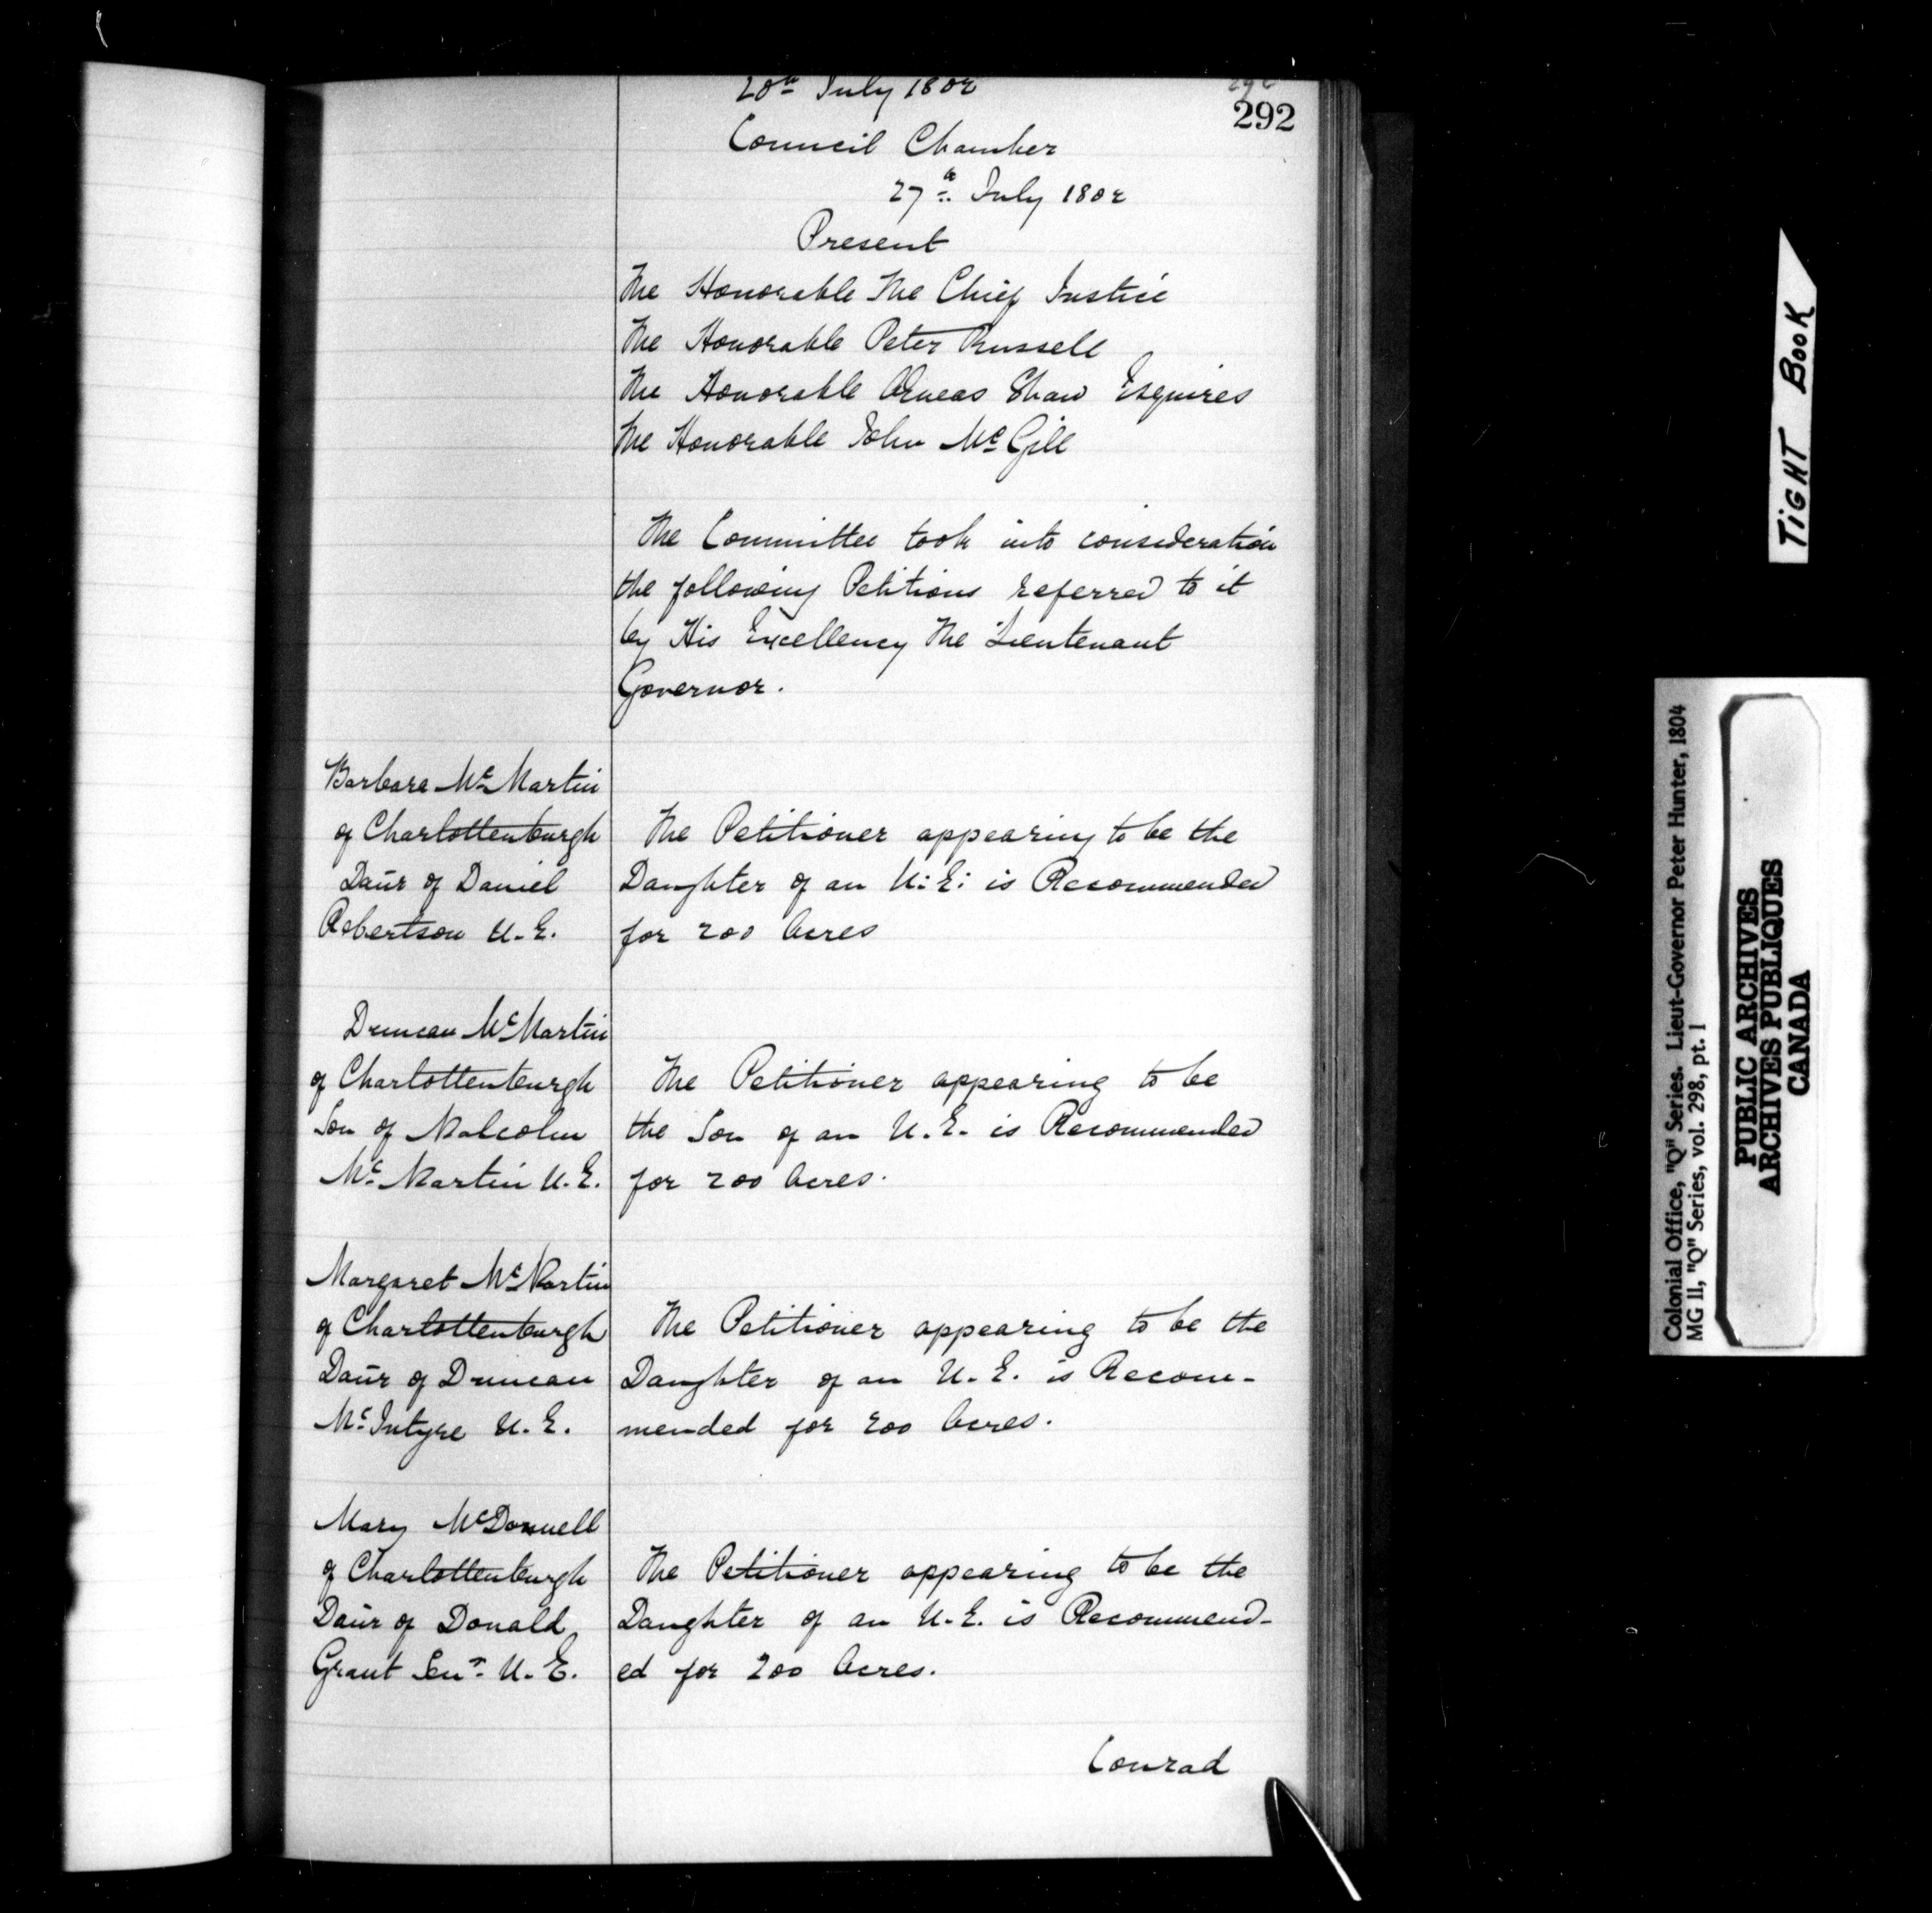 20th July 1802
292
Council Chamber
27th July 1802
Present
The Honorable The Chief Justice
The Honorable Peter Russell
The Honorable Æneas Shaw Esquires
The Honorable John McGill
The Committee took into consideration
the following Petitions referred to it
by His Excellency The Lieutenant
Governor.
Barbara McMartin
of Charlottenburgh
Daur of Daniel
Robertson U.E.
The Petitioner appearing to be the
Daughter of an U:E: is Recommended
for 200 Acres
Duncan McMartin
of Charlottenburgh
Son of Malcolm
McMartin U.E.
The Petitioner appearing to be
the Son of an U.E. is Recommended
for 200 Acres.
Margaret McMartin
of Charlottenburgh
Daur of Duncan
McIntyre U.E.
The Petitioner appearing to be the
Daughter of an U.E. is Recom-
mended for 200 Acres.
Mary McDonnell
of Charlottenburgh
Daur of Donald
Grant Senr. U.E.
The Petitioner appearing to be the
Daughter of an U.E. is Recommend-
ed for 200 Acres.
Conrad
TIGHT BOOK
Colonial Office, "Q" Series. Lieut-Governor Peter Hunter, 1804
MG 11, "Q" Series, vol. 298, pt. 1
PUBLIC ARCHIVES
ARCHIVES PUBLIQUES
CANADA